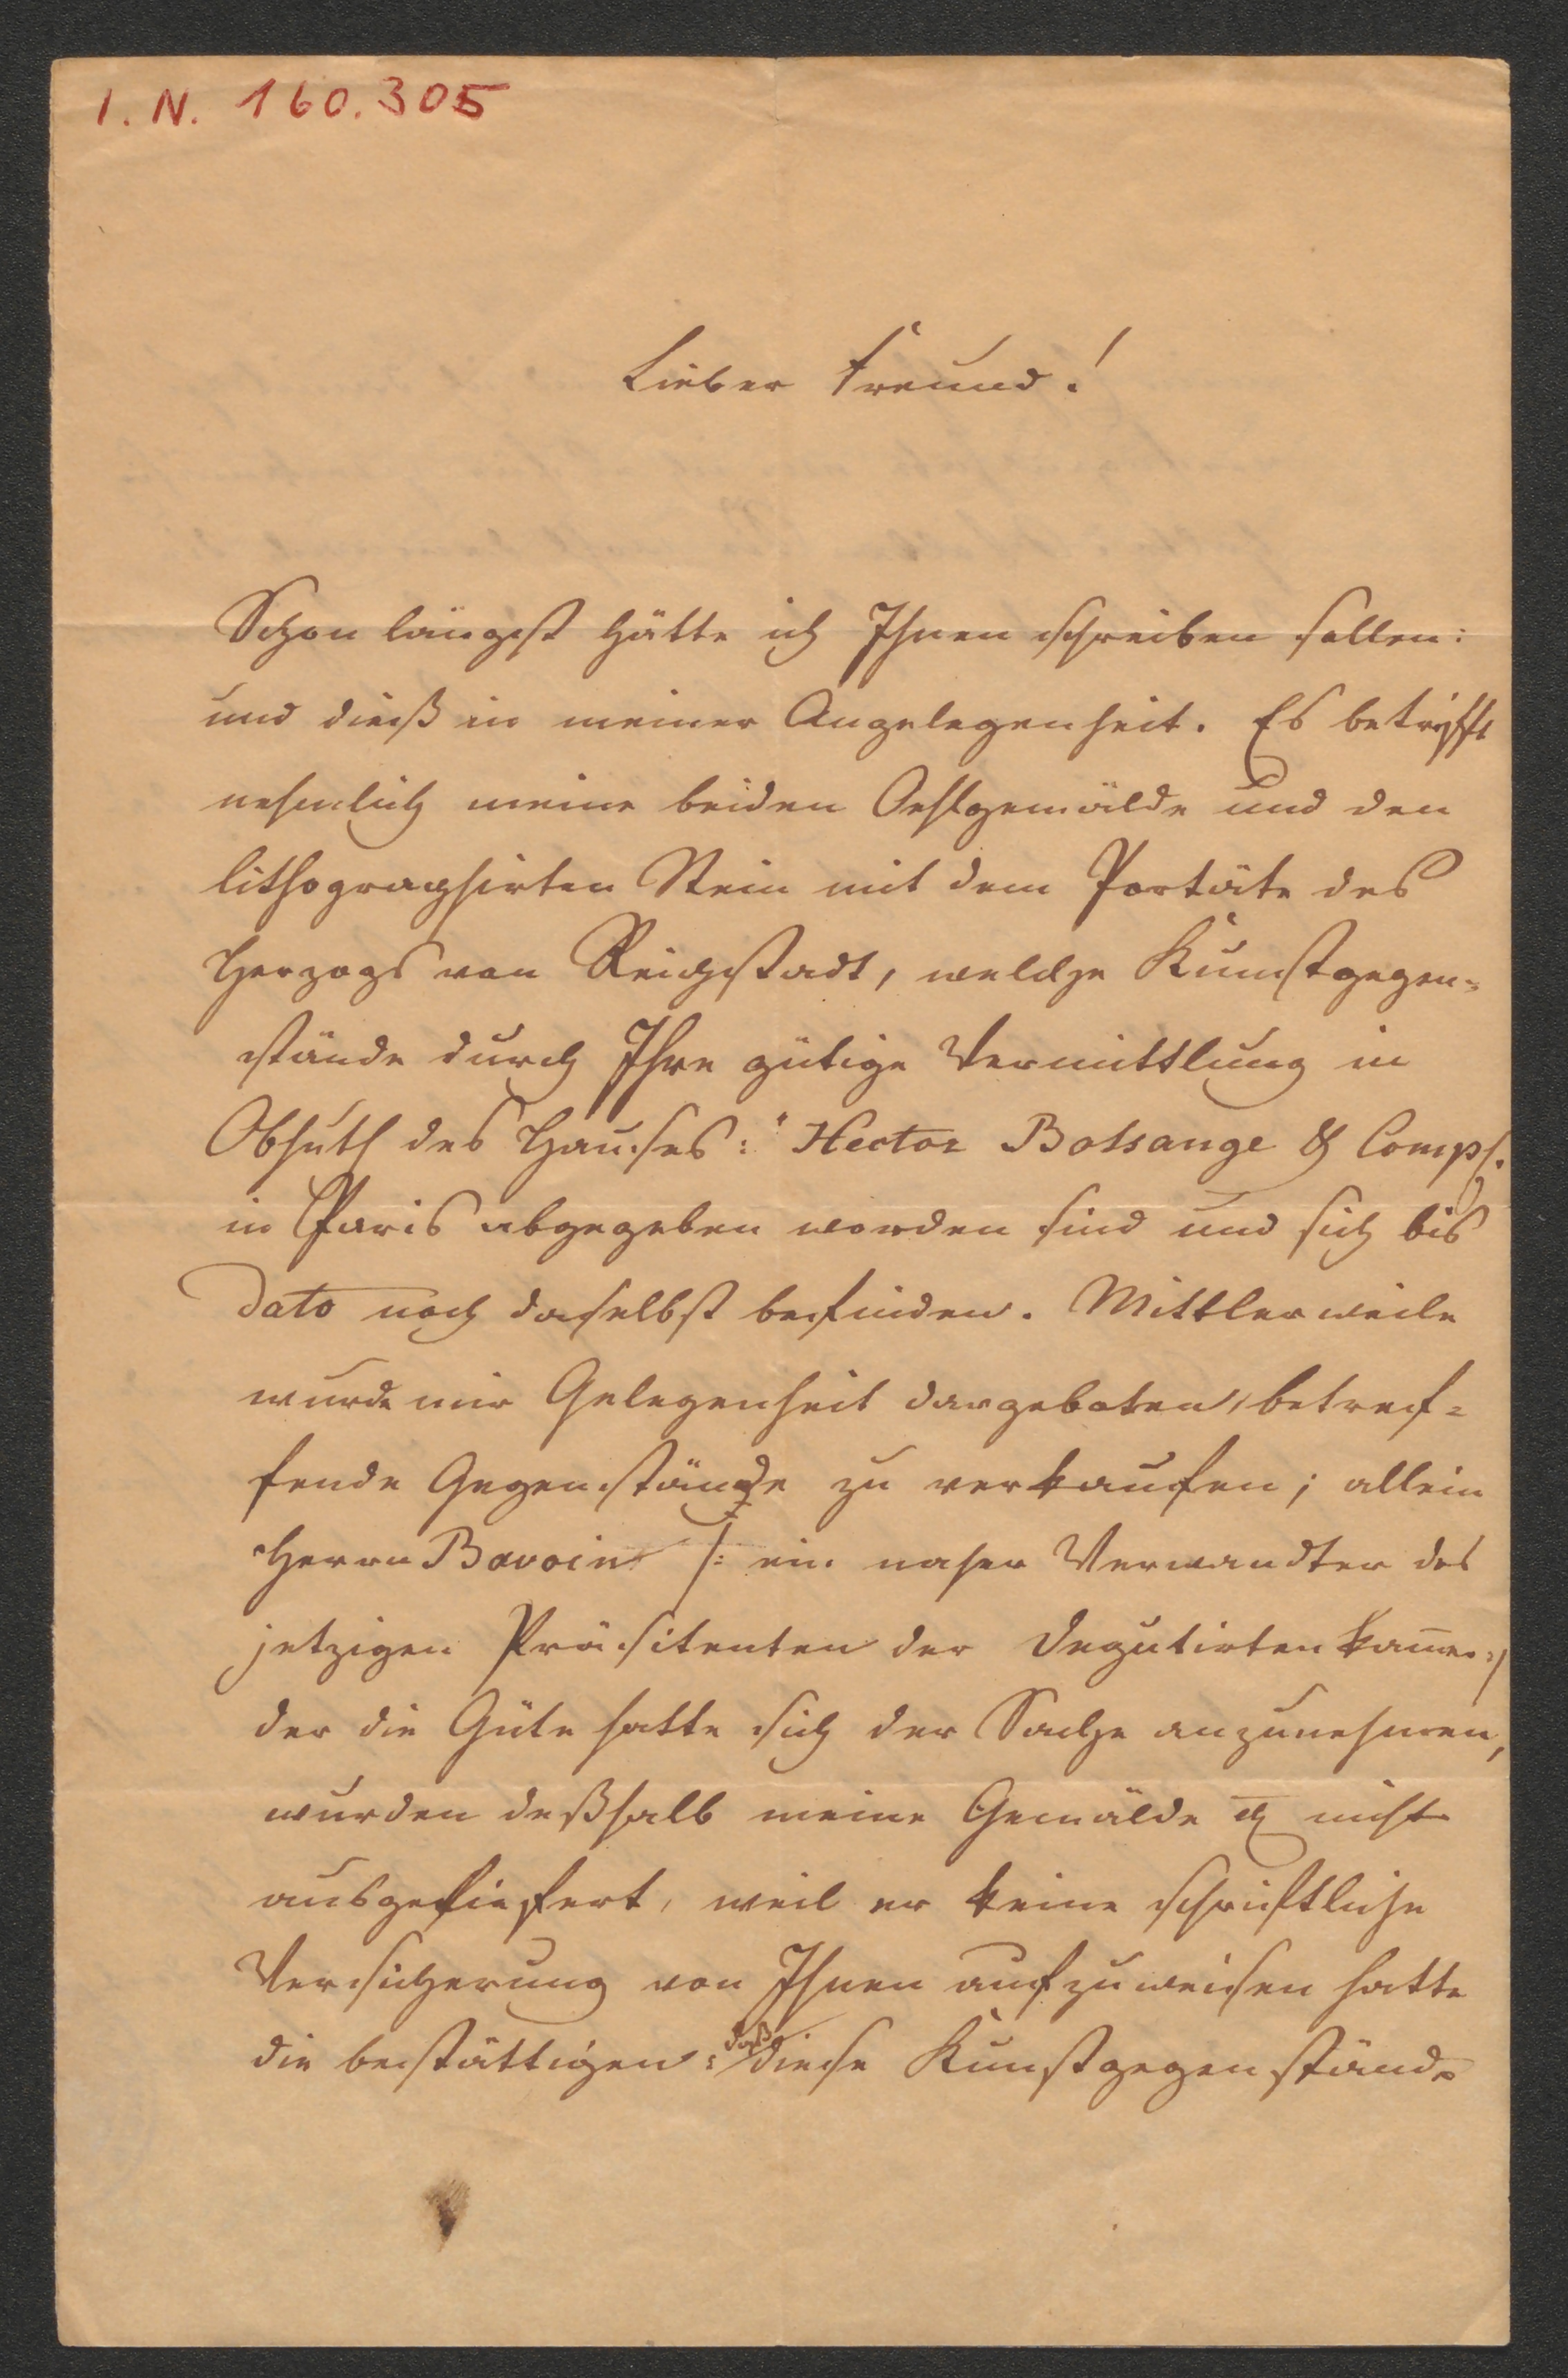 I. N. 160.305
Lieber Freund!
Schon längst hätte ich Ihnen schreiben sollen:
und dieß in meiner Angelegenheit. Es betrifft
nehmlich meine beiden Oehlgemälde und den
lithographirten Stein mit dem Portäte des
Herzogs von Reichstadt, welche Kunstgegen-
stände durch Ihre gütige Vermittlung in
Obhuth des Hauses: "Hector Bossange & Comp.
in Paris abgegeben worden sind und sich bis
dato noch daselbst befinden. Mittlerweile
wurde mir Gelegenheit dargeboten, betref-
fende Gegenstände zu verkaufen; allein
Herrn Bavoin /: ein naher Verwandter des
jetzigen Präsitenten der Deputirtenkam̄er :/
der die Güte hatte sich der Sache anzunehmen,
wurden deßhalb meine Gemälde & nicht
ausgeliefert, weil er keine schriftliche
Versicherung von Ihnen aufzuweisen hatte
die bestättigen: daß diese Kunstgegenstände